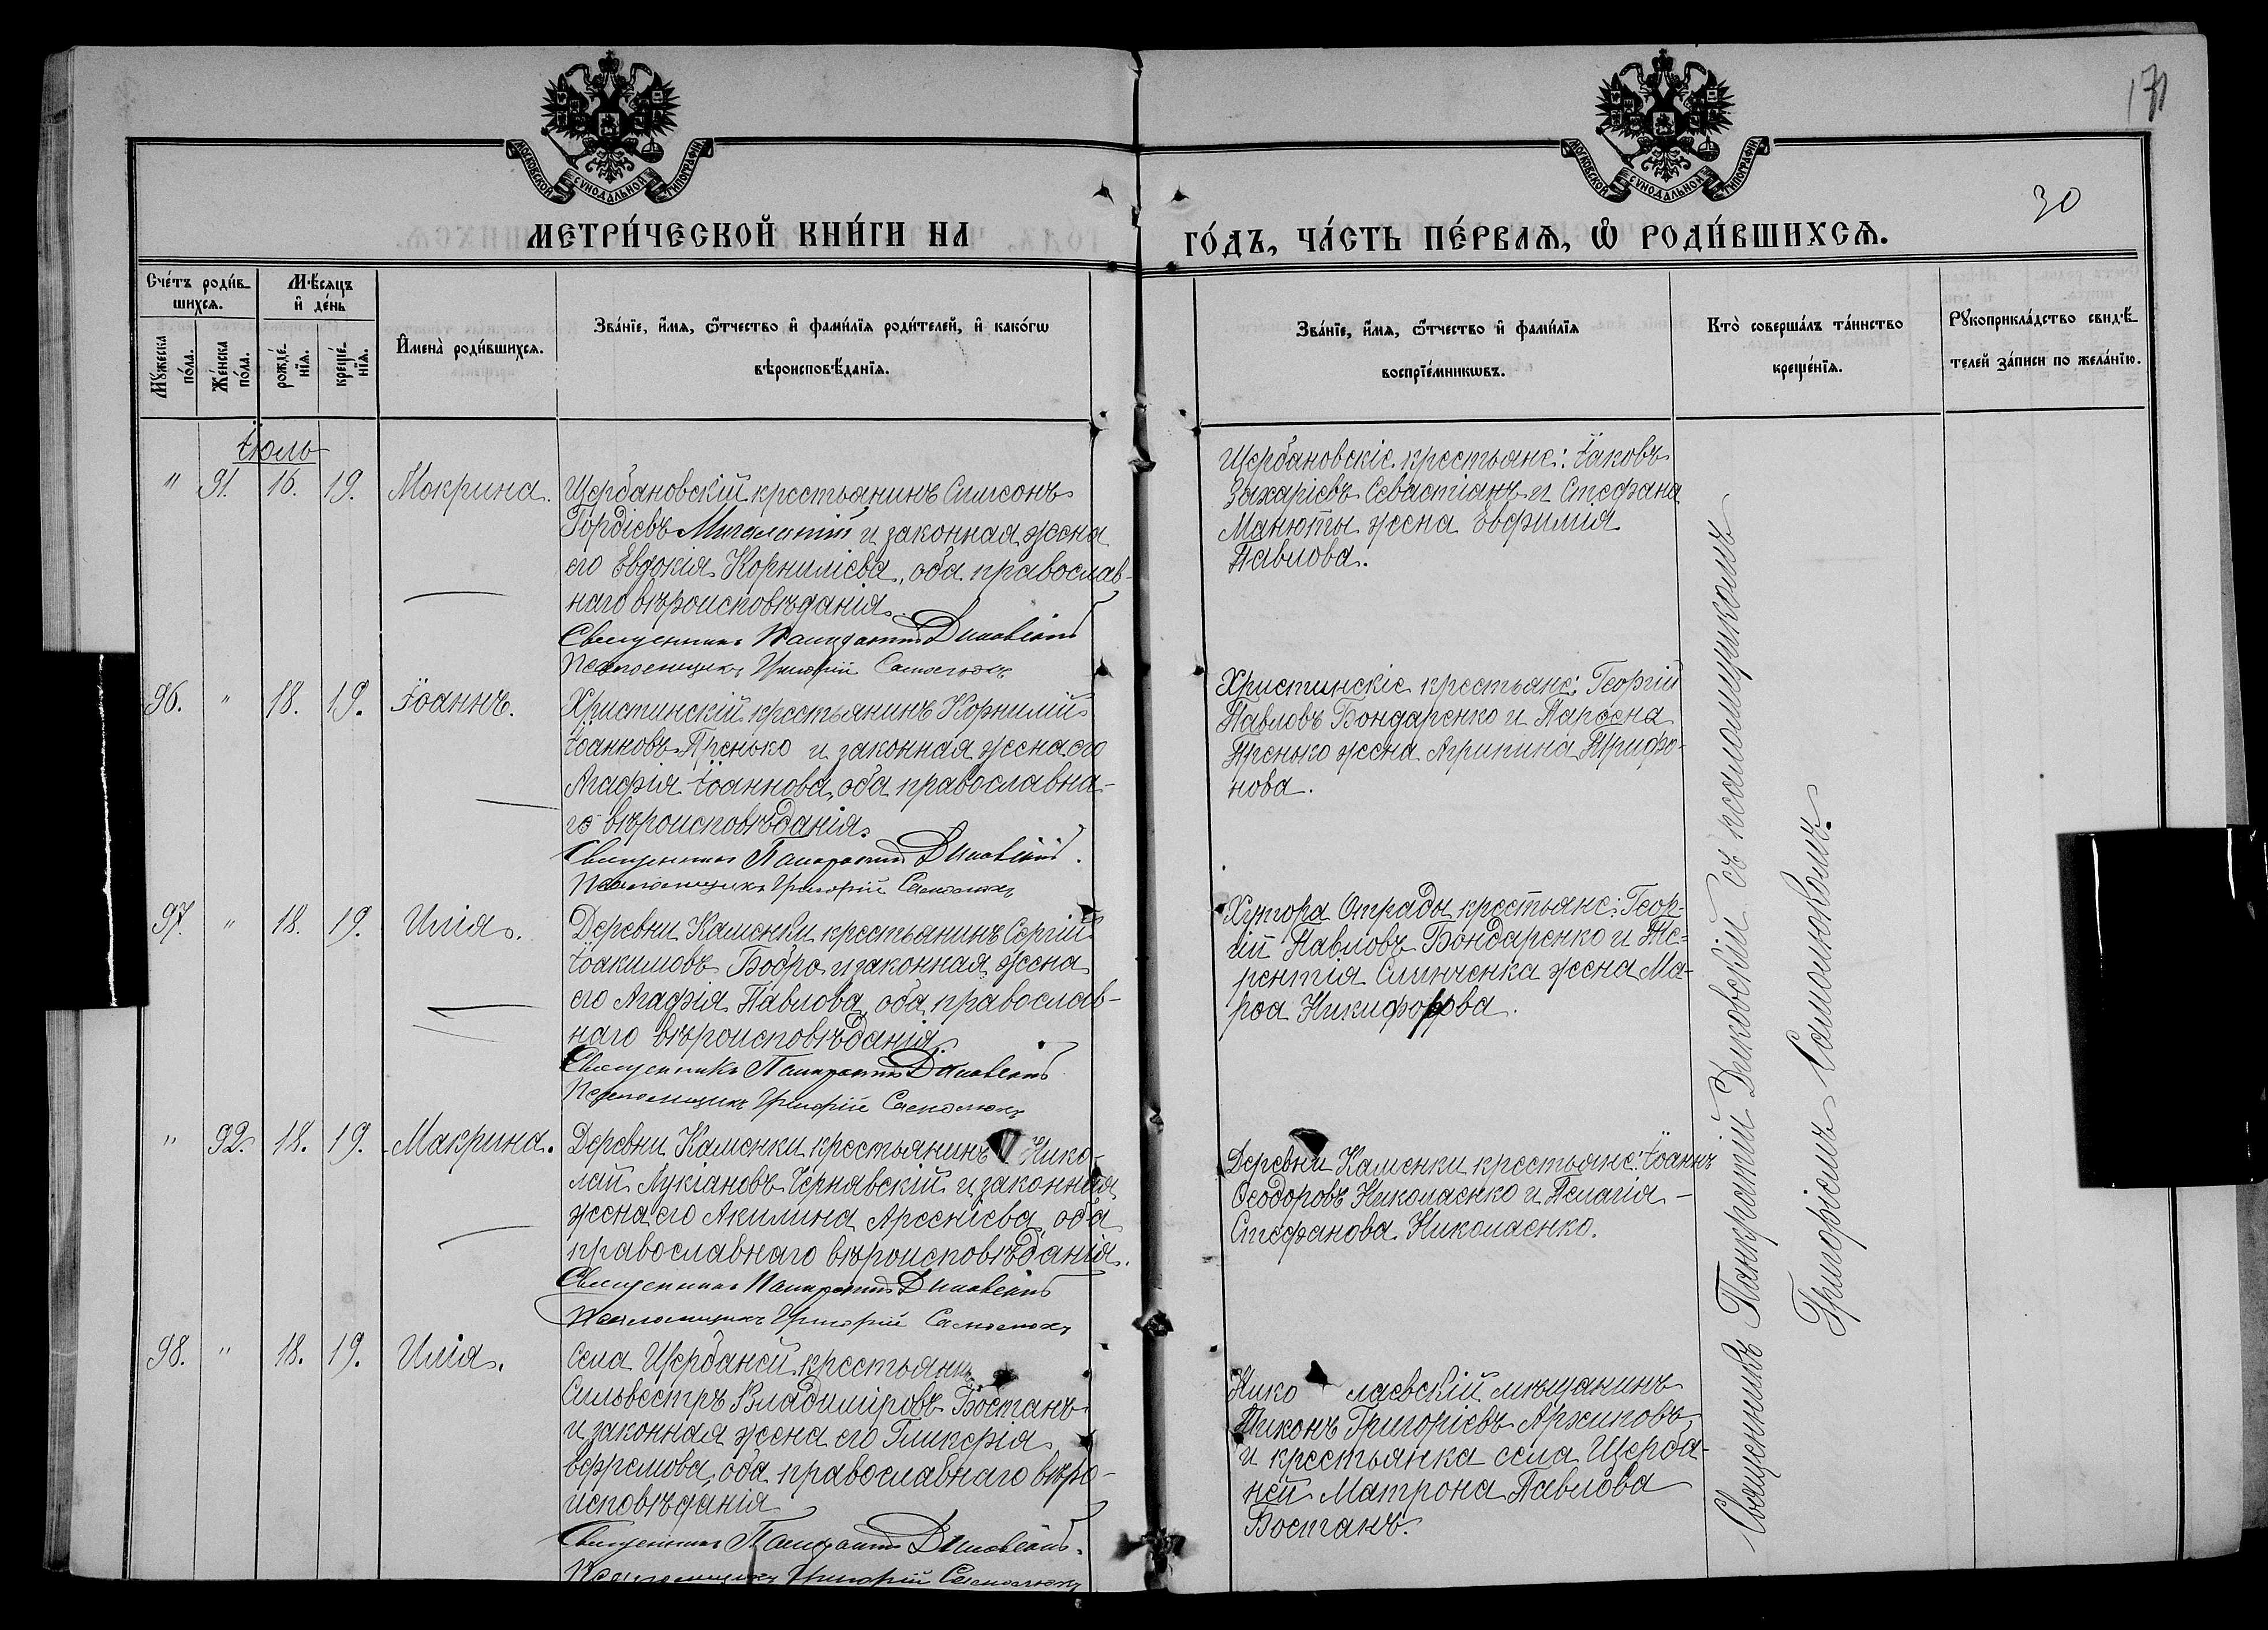 171
30
МОСКОВСКОЙ СѴНОДАЛЬНОЙ ТИПОГРАФІИ
МОСКОВСКОЙ СѴНОДАЛЬНОЙ ТИПОГРАФІИ
МЕТРИ́ЧЕСКОЙ КНИ́ГИ НА
ГО́ДЪ, ЧА́СТЬ ПЕ́РВАѦ, Ѡ РОДИ́ВШИХСѦ.
Сче́тъ роди́в-
шихсѧ.
Мꙋ́жеска
по́ла.
Же́нска
по́ла.
Мѣ́сѧцъ
и҆ де́нь
рожде́-
нїѧ.
креще́-
нїѧ.
И҆мена̀ роди́вшихсѧ.
Зва́нїе, и҆́мѧ, ѻ҆́тчество и҆ фами́лїѧ роди́телей, и҆ како́гѡ
вѣроисповѣ́данїѧ.
Зва́нїе, и҆́мѧ, ѻ҆́тчество и҆ фами́лїѧ
воспрїе́мникѡвъ.
Кто̀ соверша́лъ та́инство
креще́нїѧ.
Рꙋкоприкла́дство свидѣ́-
телей за́писи по жела́нїю.
Іюль
" 91. 16. 19. Макрина. Щербановскій крестьянинъ Симеонъ
Гордіевъ и законная жена
его Евдокія Корниліева, оба православ-
наго вѣроисповѣданія.
Священникъ Панкратій Диковскій
Псаломщикъ Григорій Самолюкъ
Щербановскіе крестьяне: Іаковъ
Захаріевъ Севастіанъ и Стефана
Манюты жена Евфимія
Павлова.
96. " 18. 19. Іоаннъ. Христинскій крестьянинъ Корнилій
Іоанновъ Пренько и законная жена его
Агафія Іоаннова, оба православна-
го вѣроисповѣданія.
Священникъ Панкратій Диковскій.
Псаломщикъ Григорій Самолюкъ
Христинскіе крестьяне: Георгій
Павловъ Бондаренко и
Пренько жена Агрипина Трифо-
нова.
97. " 18. 19. Илія. Деревни Каменки крестьянинъ Сергій
Іоакимовъ Бобро и законная жена
его Агафія Павлова, оба православ-
наго вѣроисповѣданія.
Священникъ Панкратій Диковскій
Псаломщикъ Григорій Самолюкъ
Хутора Отрады крестьяне: Геор-
гій Павловъ Бондаренко и Те-
рентія Слинченка жена Ма-
рѳа Никифорова.
" 92. 18. 19. Макрина. Деревни Каменки крестьянинъ Нико-
лай Лукіановъ Чернявскій и законная
жена его Акилина Арсеніева, оба
православнаго вѣроисповѣданія.
Священникъ Панкратій Диковскій
Псаломщикъ Григорій Самолюкъ
Деревни Каменки крестьяне: Іоаннъ
Ѳеодоровъ Николаенко и Пелагія
Стефанова Николаенко.
98. " 18. 19. Илія. Села Щербаней крестьянинъ
Сильвестръ Владиміровъ Бостанъ
и законная жена его Гликерія
Ефремова, оба православнаго вѣро-
исповѣданія
Священникъ Панкратій Диковскій.
Псаломщикъ Григорій Самолюкъ
Николаевскій мѣщанинъ
Тихонъ Григоріевъ Архиповъ
и крестьянка села Щерба-
ней Матрона Павлова
Бостанъ.
Священникъ Панкратій Диковскій съ псаломщикомъ
Григоріемъ Самолюкомъ.